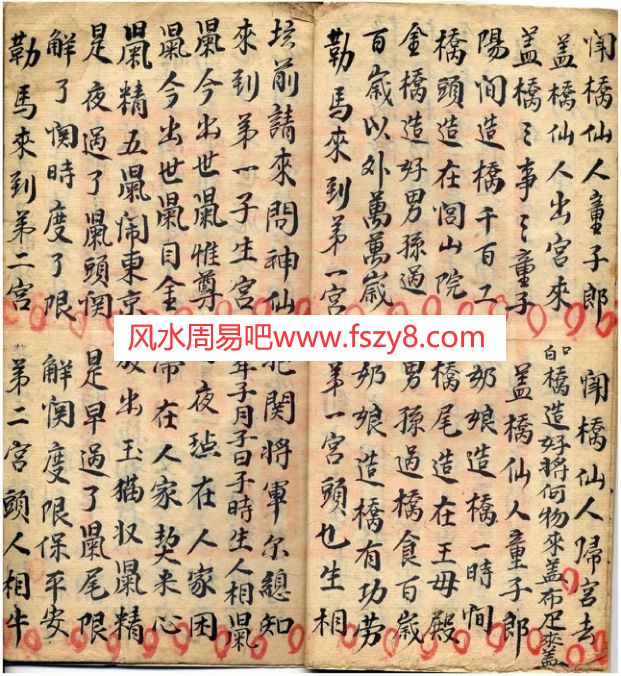 闹橋仙人童子郎 闹橋仙人歸宫去
盖橋仙人出宫來 白橋造好將何物來盖布疋來蓋
盖橋〻事〻童子 盖橋仙人童子郎
陽间造橋千百二 奶娘造橋一時间
橋頭造在闾山院 橋尾造在王母殿
金橋造好男孫過 男孫過橋食百歲
百歲以外萬萬歲 奶娘造橋有功劳
勒馬來到第一宫 第一宫頭乜生相
坛前請來問神仙 関將軍尔總知
來到第一子生宫 年子月子日子時生人相鼠
鼠今出世鼠惟尊 夜在人家困
鼠今出世鼠目金 在人家來心
鼠精五鼠闹東京 放出玉猫収鼠精
是夜過了鼠頭関 是早過了鼠尾限
解了関時度了限 解関度限保平安
勒馬來到第二宫 第二宫頭人相牛
风水周易吧www.fszy8.com